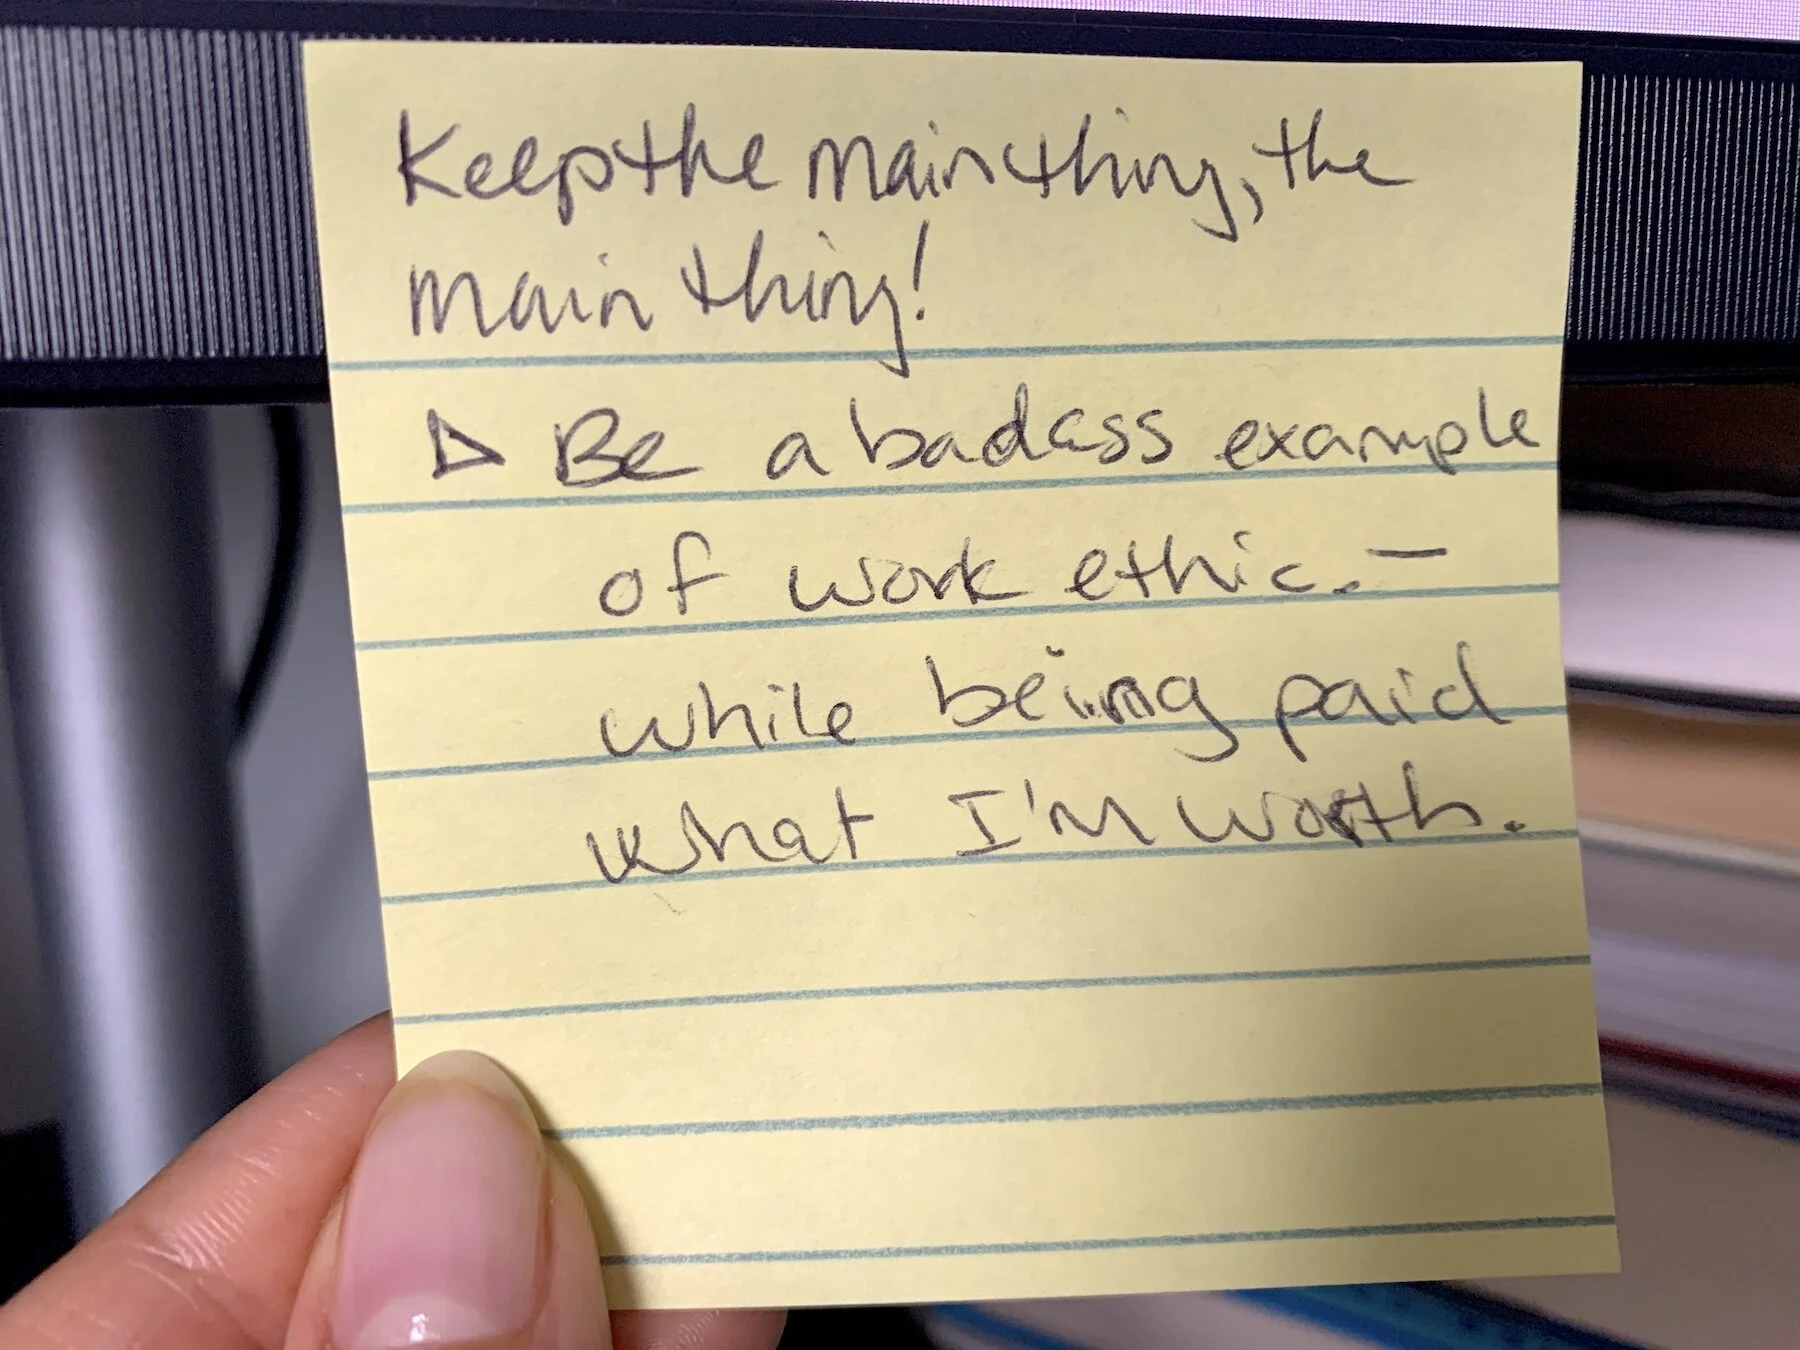 Keep the main thing, the
main thing!
▷ Be a badass example
of work ethic. –
while being paid
what I'm worth.